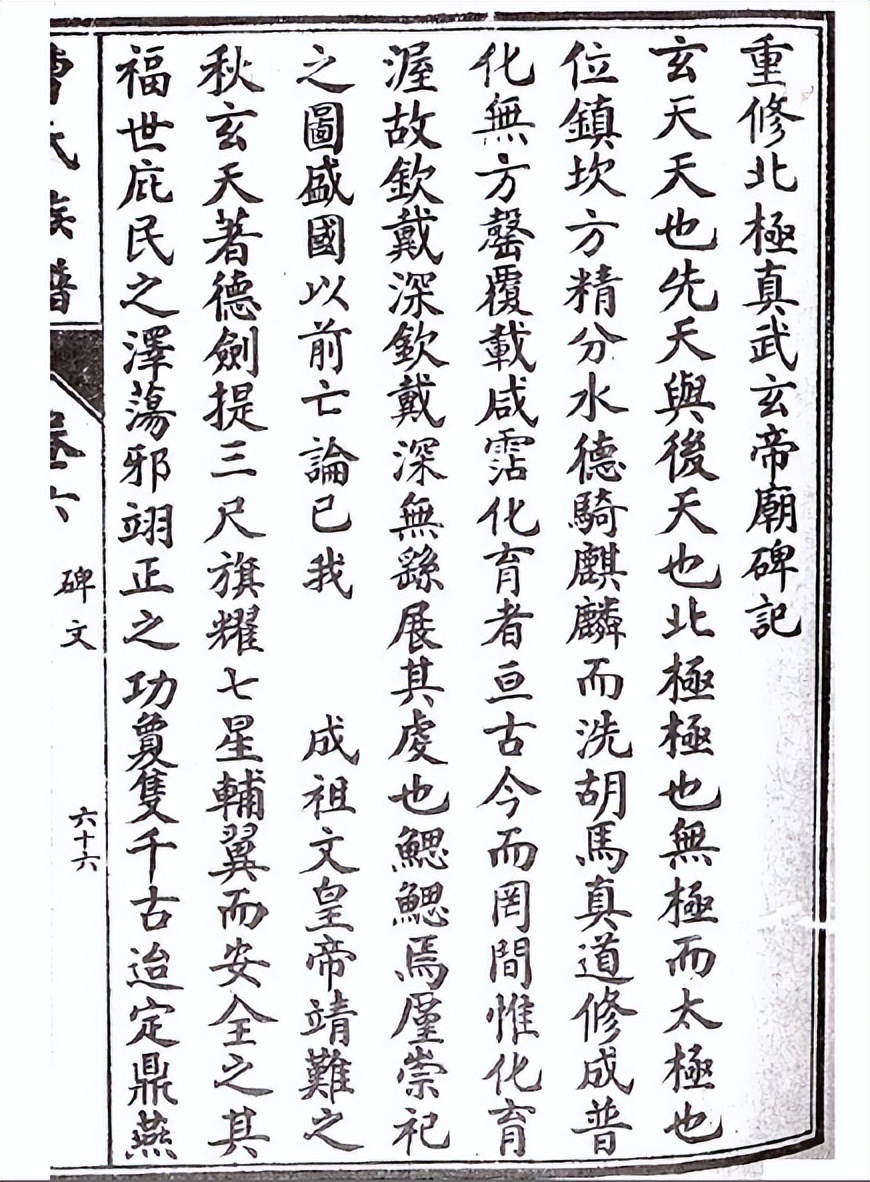 重修北極真武玄帝廟碑記
玄天天也先天與後天也北極極也無極而太極也
位鎮坎方精分水德騎麒麟而洗胡馬真道修成普
化無方罄覆載咸霑化育者亘古今而罔間惟化育
渥故欽戴深欽戴深無繇展其虔也鰓鰓焉廑崇祀
之圖盛國以前亡論已我 成祖文皇帝靖難之
秋玄天著德劍提三尺旗耀七星輔翼而安全之其
福世庇民之澤蕩邪翊正之功敻隻千古迨定鼎燕
氏族譜
卷六 碑文 六十六